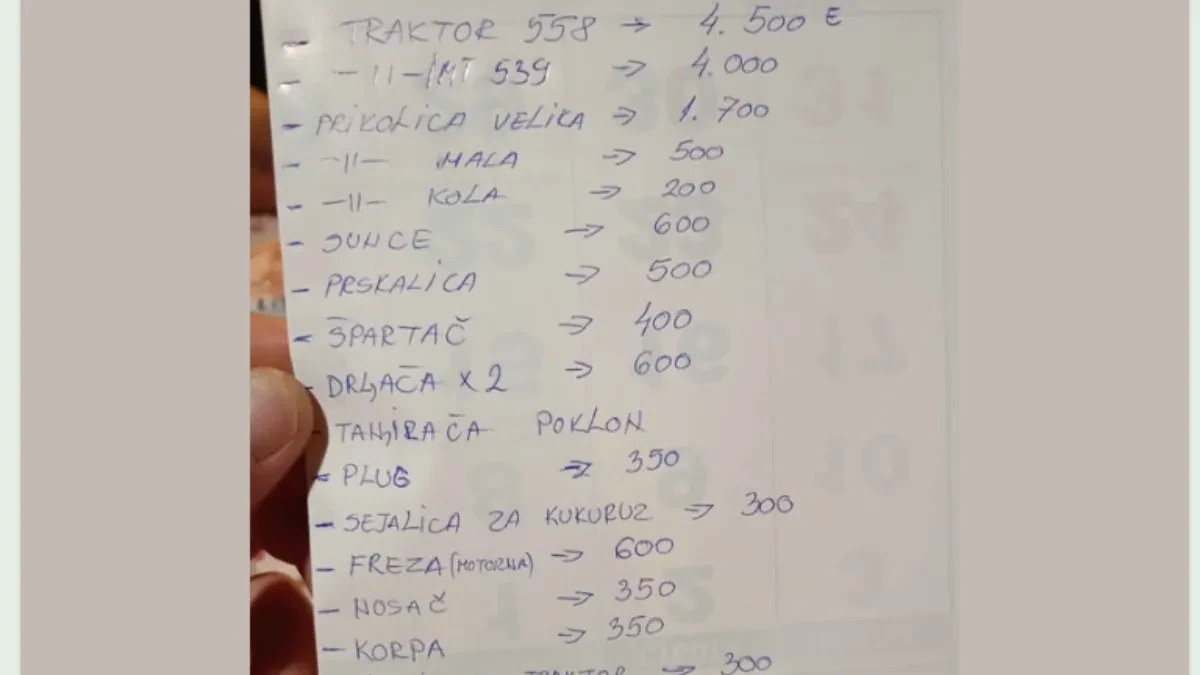 - TRAKTOR 558 → 4.500 E
- -11-IMT 539 → 4.000
- PRIKOLICA VELIKA → 1.700
- -11- MALA → 500
- -11- KOLA → 200
- JUNCE → 600
- PRSKALICA → 500
- ŠPARTAČ → 400
- DRLJAČA X 2 → 600
- TANJIRAČA POKLON
- PLUG → 350
- SEJALICA ZA KUKURUZ → 300
- FREZA (MOTORNA) → 600
- NOSAČ → 350
- KORPA → 350
TRAKTOR → 300